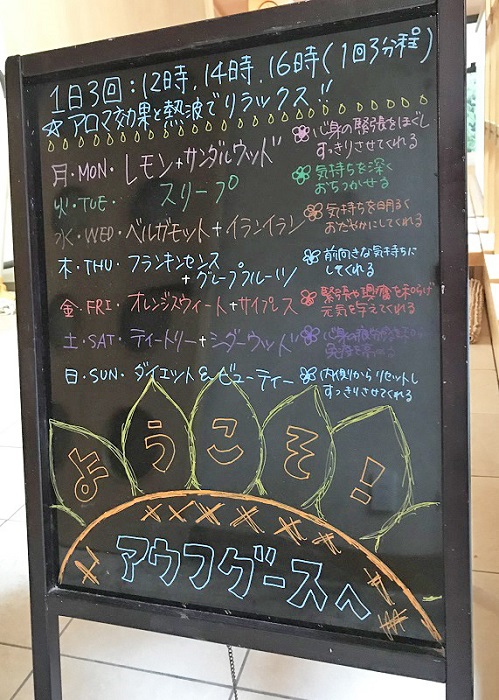 1日3回：12時、14時、16時(1回3分程)
☆アロマ効果と熱波でリラックス!!
月・MON・レモン+サンダルウッド
心身の緊張をほぐし
すっきりさせてくれる
火・TUE・スリープ
気持ちを深く
おちつかせる
水・WED・ベルガモット+イランイラン
気持ちを明るく
おだやかにしてくれる
木・THU・フランキンセンス
+グレープフルーツ
前向きな気持ちに
してくれる
金・FRI・オレンジスウィート+サイプレス
緊張や興奮を和らげ
元気を与えてくれる
土・SAT・ティートリー+シダーウッド
心身の
日・SUN・ダイエット&ビューティー
内側からリセットし
すっきりさせてくれる
ようこそ!
アウフグースへ